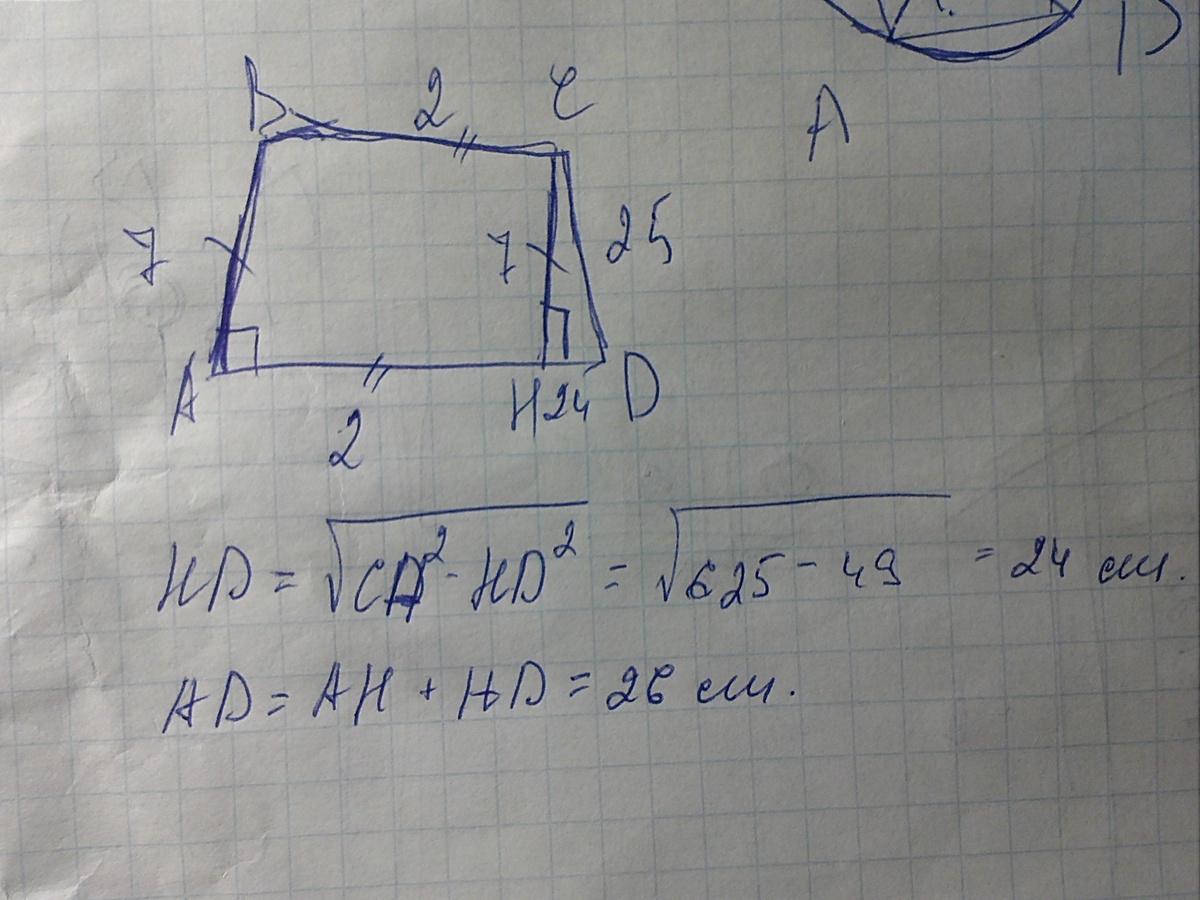 D
B 2 C
A
7 7 25
A H 24 D
2
HD = √CD² - HD² = √625 - 49 = 24 см.
AD = AH + HD = 26 см.